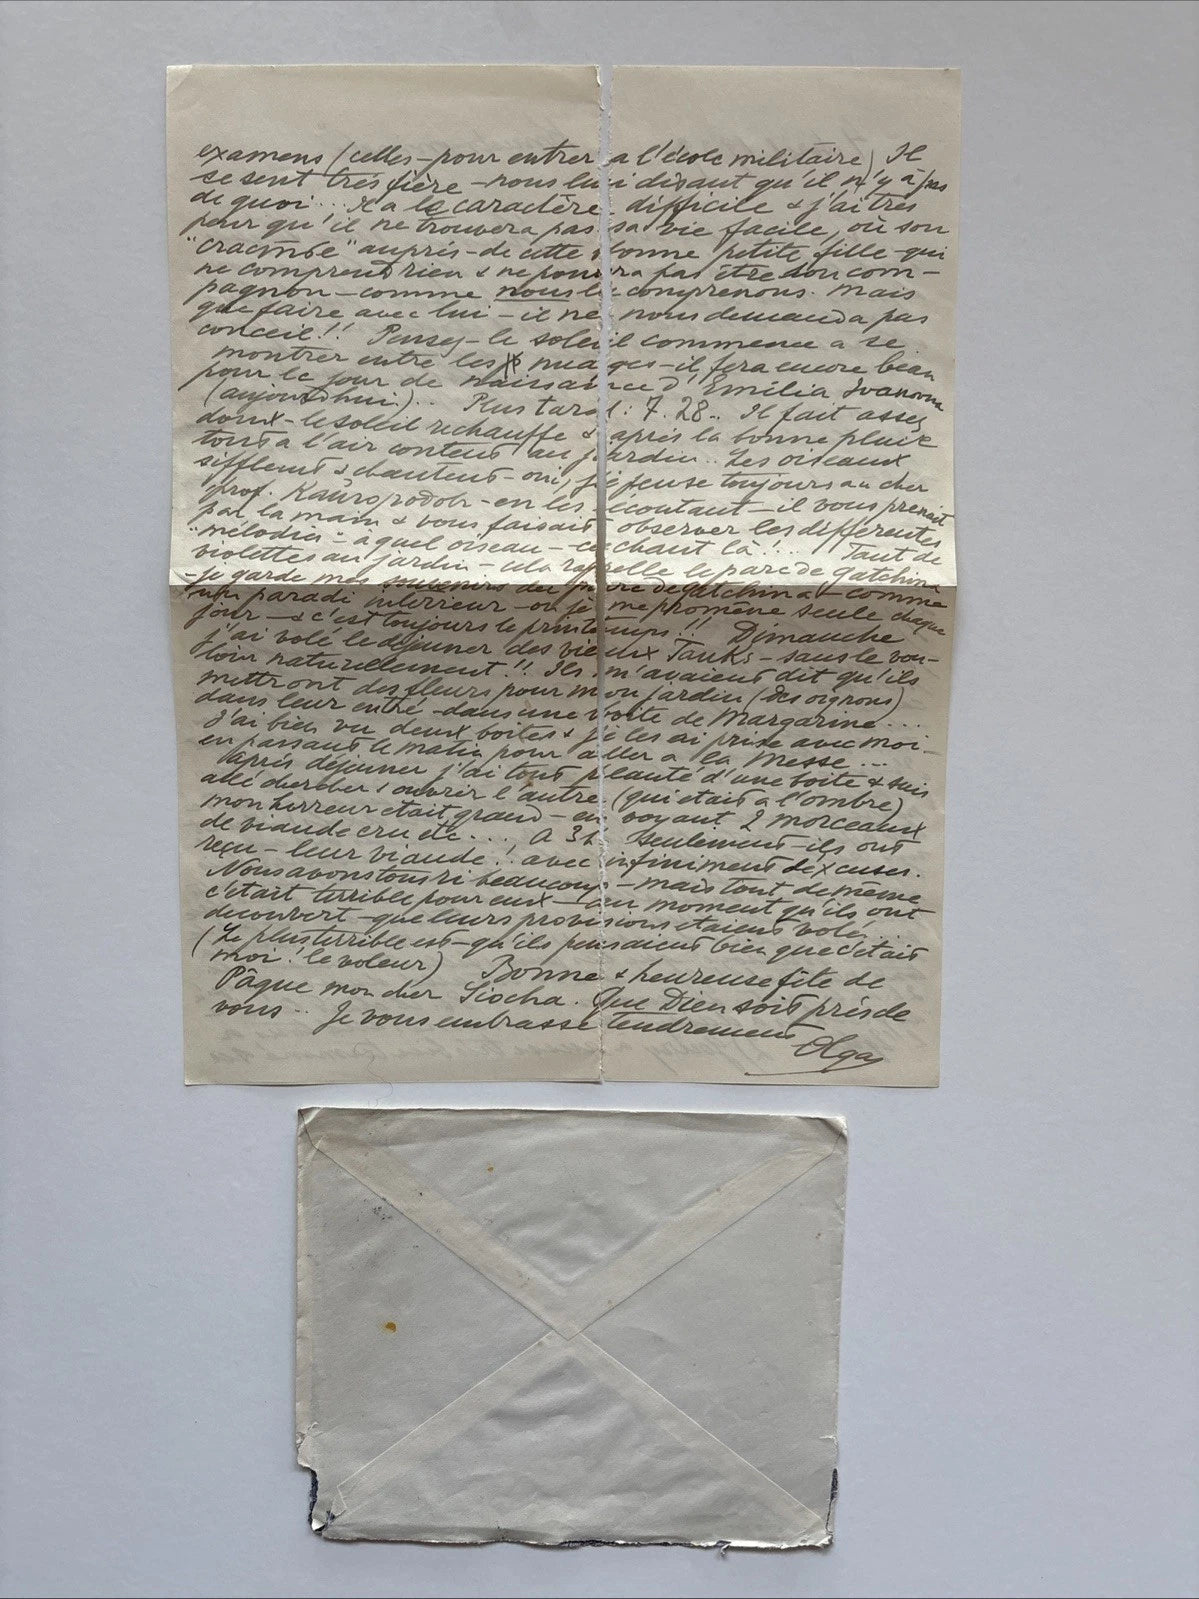 examens (celles-pour entrer a l'école militaire) Il
se sent très fière - nous lui disant qu'il n'y à pas
de quoi... Il a le caractère difficile & j'ai très
peur qu'il ne trouvera pas sa vie facile, où son
auprés-de cette bonne petite fille-qui
ne comprend rien & ne pourra pas être son com-
pagnon-comme nous le comprenons. Mais
que faire avec lui - il ne nous demanda pas
conceil!! Pensez-le soleil commence a se
montrer entre les nuages-il fera encore beau
pour le jour de naissance d'Emilia, Ivanovna
(aujourdhui).. Plus tard: 7.28.. Il fait assez
doux-le soleil rechauffe & après la bonne pluie
tout a l'air content au jardin.. Les oiseaux
sifflent & chantent-oui, je pense toujours au cher
prof. -en les écoutant-il vous prenait
par la main & vous faisait observer les différentes
"mélodies"-à quel oiseau-ce chant là!... Tant de
violettes au jardin-cela rappelle le parc de Gatchina
-je garde mes souvenirs du parc de Gatchina-comme
un paradi interieur-ou je me promène seule chaque
jour-& c'est toujours le printemps!! Dimanche
j'ai volé le dejeuner des vieux Tanks-sans le vou-
loir naturellement!! Ils m'avaient dit qu'ils
mettront des fleurs pour mon jardin (des oignons)
dans leur entré-dans une boite de Margarine...
J'ai bien vu deux boites & je les ai prise avec moi-
en passant le matin pour aller a la Messe...
Après dejeuner j'ai tout planté d'une boite & suis
allé chercher & ouvrir l'autre (qui etait a l'ombre)
mon horreur etait grand-en voyant 2 morceaux
de viande crude... A 3h seulement-ils ont
reçu-leur viande! avec infiniment d'éxcuses.
Nous avons tous ri beaucoup-mais tout de même
c'était terrible pour eux-au moment qu'ils ont
decouvert-que leurs provisions etaient volé..
(Le plus terrible est-qu'ils pensaient bien que c'était
moi! le voleur) Bonne & heureuse fête de
Pâque mon cher Liocha. Que Dieu soit près de
vous.. Je vous embrasse tendrement
Olga